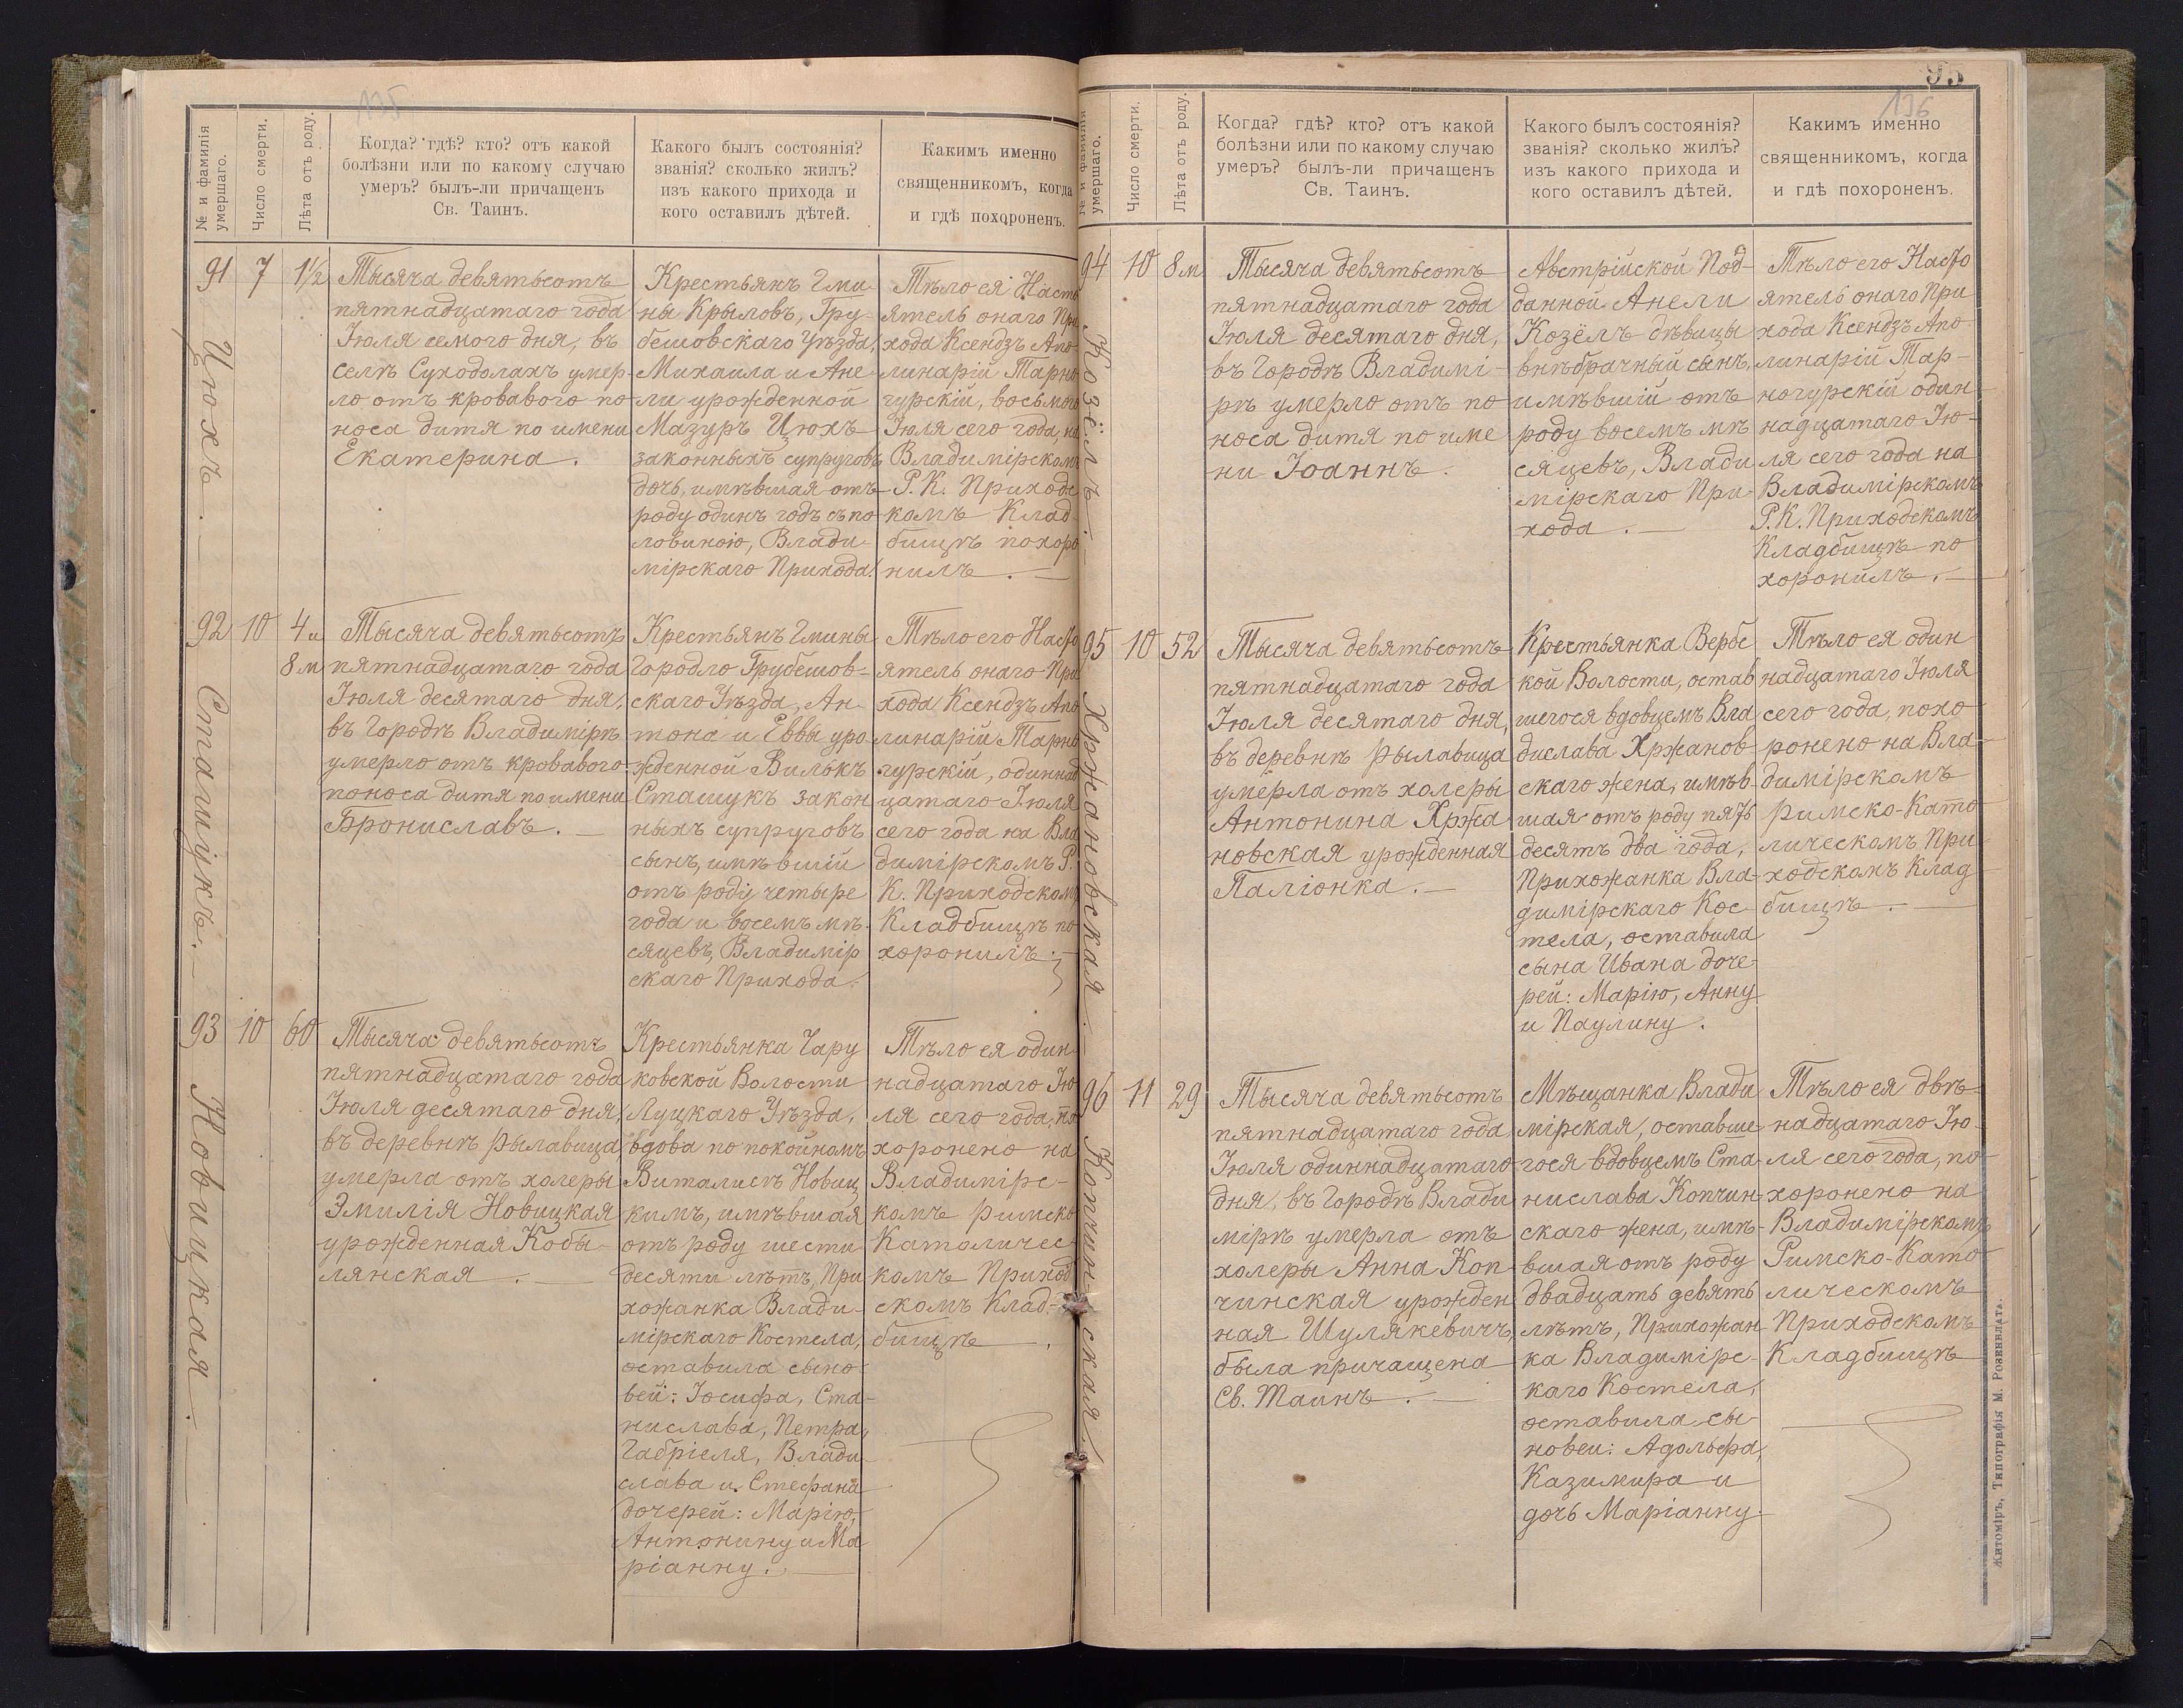 135
№ и фамилія
умершаго.
Число смерти.
Лѣта отъ роду.
Когда? гдѣ? кто? отъ какой
болѣзни или по какому случаю
умеръ? былъ-ли причащенъ
Св. Таинъ.
Какого былъ состоянія?
званія? сколько жилъ?
изъ какого прихода и
кого оставилъ дѣтей.
Какимъ именно
священникомъ, когда
и гдѣ похороненъ.
91
Цюхъ.
7
1½
Тысяча девятьсотъ
пятнадцатаго года
Іюля семого дня, въ
селѣ Суходолахъ умер-
ло отъ кроваваго по-
носа дитя по имени
Екатерина.
Крестьянъ Гми-
ны Крыловъ, Гру-
бешовскаго Уѣзда,
Михаила и Ане-
ли урожденной
Мазуръ Цюхъ
законныхъ супруговъ
дочь, имѣвшая отъ
роду одинъ годъ съ по-
ловиною, Влади-
мірскаго Прихода.
Тѣло ея Насто
ятель онаго При
хода Ксендзъ Апо-
линарій Тарно
гурскій, восьмого
Іюля сего года, на
Владимірскомъ
Р. К. Приходс
комъ Клад
бищѣ похоро
нилъ.
92
Сташукъ.
10
4 и
8 м
Тысяча девятьсотъ
пятнадцатаго года
Іюля десятаго дня,
въ Городѣ Владимірѣ
умерло отъ кроваваго
поноса дитя по имени
Брониславъ.
Крестьянъ Гмины
Городло Грубешов-
скаго Уѣзда, Ан-
тона и Еввы уро
жденной Вилькъ
Сташукъ закон
ныхъ супруговъ
сынъ, имѣвшій
отъ роду четыре
года и восемъ мѣ-
сяцевъ, Владимір
скаго Прихода.
Тѣло его Насто
ятель онаго При
хода Ксендзъ Апо
линарій Тарно
гурскій, одиннад
цатаго Іюля
сего года на Вла
димірскомъ Р.
К. Приходскомъ
Кладбищѣ по
хоронилъ.
93
Новицкая.
10
60
Тысяча девятьсотъ
пятнадцатаго года
Іюля десятаго дня,
въ деревнѣ Рылавица
умерла отъ холеры
Эмилія Новицкая
урожденная Кобы-
лянская.
Крестьянка Чару
ковской Волости
Луцкаго Уѣзда,
вдова по покойномъ
Виталисѣ Новиц
кимъ, имѣвшая
отъ роду шести
десяти лѣтъ, При
хожанка Влади-
мірскаго Костела,
оставила сыно-
вей: Іосифа, Ста-
нислава, Петра,
Габріеля, Влади-
слава и Стефана
дочерей: Марію,
Антонину и Ма
ріанну.
Тѣло ея один
надцатаго Ію
ля сего года, по
хоронено на
Владимірс-
комъ Римско
Католичес-
комъ Приход
скомъ Клад-
бищѣ.
95
136
№ и фамилія
умершаго.
Число смерти.
Лѣта отъ роду.
Когда? гдѣ? кто? отъ какой
болѣзни или по какому случаю
умеръ? былъ-ли причащенъ
Св. Таинъ.
Какого былъ состоянія?
званія? сколько жилъ?
изъ какого прихода и
кого оставилъ дѣтей.
Какимъ именно
священникомъ, когда
и гдѣ похороненъ.
94
Козёлъ.
10
8 м
Тысяча девятьсотъ
пятнадцатаго года
Іюля десятаго дня,
въ Городѣ Владимі-
рѣ умерло отъ по
носа дитя по име
ни Іоаннъ.
Австрійской Под-
данной Анели
Козёлъ дѣвицы
внѣбрачный сынъ,
имѣвшій отъ
роду восемъ мѣ
сяцевъ, Влади
мірскаго При-
хода.
Тѣло его Насто
ятель онаго При
хода Ксендзъ Апо
линарій Тар-
ногурскій один-
надцатаго Ію-
ля сего года на
Владимірскомъ
Р. К. Приходскомъ
Кладбищѣ по
хоронилъ.
95
Хржановская.
10
52
Тысяча девятьсотъ
пятнадцатаго года
Іюля десятаго дня,
въ деревнѣ Рылавица
умерла отъ холеры
Антонина Хржа
новская урожденная
Паліонка.
Крестьянка Вербс
кой Волости, остав
шегося вдовцемъ Вла
дислава Хржанов-
скаго жена, имѣв-
шая отъ роду пять
десятъ два года,
Прихожанка Вла-
димірскаго Кос-
тела, оставила
сына Ивана доче-
рей: Марію, Анну
и Паулину.
Тѣло ея один
надцатаго Іюля
сего года, похо-
ронено на Вла-
димірскомъ
Римско-Като
лическомъ При
ходскомъ Клад
бищѣ.
96
Копчин-
ская.
11
29
Тысяча девятьсотъ
пятнадцатаго года
Іюля одиннадцатаго
дня, въ Городѣ Влади
мірѣ умерла отъ
холеры Анна Коп
чинская урожден
ная Шулякевичъ,
была причащена
Св. Таинъ.
Мѣщанка Влади
мірская, оставше-
гося вдовцемъ Ста-
нислава Копчин-
скаго жена, имѣ-
вшая отъ роду
двадцать девять
лѣтъ, Прихожан-
ка Владимірс-
каго Костела,
оставила сы
новеи: Адольфа,
Казимира и
дочь Маріанну.
Тѣло ея двѣ-
надцатаго Ію-
ля сего года, по-
хоронено на
Владимірскомъ
Римско-Като
лическомъ
Приходскомъ
Кладбищѣ
Житоміръ, Типографія М. Розенблата.